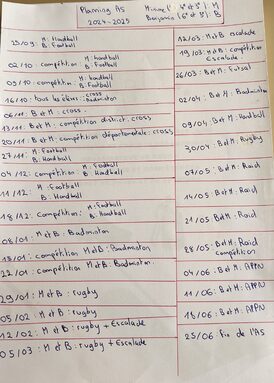 Planning AS
2024-2025
Minime(s) 4e et 3e : M
Benjamins (6e et 5e) : B
25/09 : M : Handball
B : Football
02/10 : compétition : M : handball
B : Football
09/10 : compétition : M : handball
B : Football
16/10 : tous les élèves : cross
Badminton
06/11 : B et M : cross
13/11 : B et M : compétition district, cross
20/11 : B et M : compétition départementale : cross
27/11 : M : Football
B : Handball
04/12 : compétition : M : Football
B : Handball
11/12 : M : Football
B : Handball
18/12 : compétition : M : Football
B : Handball
08/01 : M et B : Badminton
15/01 : compétition M et B : Badminton
22/01 : compétition M et B : Badminton
29/01 : M et B : rugby
05/02 : M et B : rugby
12/02 : M et B : rugby + Escalade
05/03 : M et B : rugby + Escalade
12/03 : B et M : escalade
19/03 : B et M : compétition
Escalade
26/03 : B et M : Futsal
02/04 : B et M : Badminton
09/04 : B et M : Handball
30/04 : B et M : Rugby
07/05 : B et M : Raid
14/05 : B et M : Raid
21/05 : B et M : Raid
28/05 : B et M : Raid
compétition
04/06 : B et M : APPN
11/06 : B et M : APPN
18/06 : B et M : APPN
25/06 Fin de l'AS